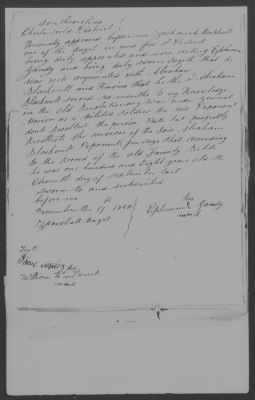 South Carolina
Chesterfield District
Personally appeared before me Zachariah
one of the Judges in and for sd District
being duly appointed and now acting Ephraim
Gandy and being duly sworn sayeth that he
was well acquainted with Abraham
Blackwell and knows that he the sd Abraham
Blackwell served months to my knowledge
in the old Revolutionary War under General
Marion as a Militia Soldier the Deponent
don't recollect the precise Date but perfectly
recollects the services of the said Abraham
Blackwell Deponent further says that according
to the Record of the old Family Bible
he was one hundred and Eight years old the
Eleventh day of september last
sworn to and subscribed
before me
December the 17 1850
Marshall
his
Ephraim Gandy
mark
Test
his
William
mark